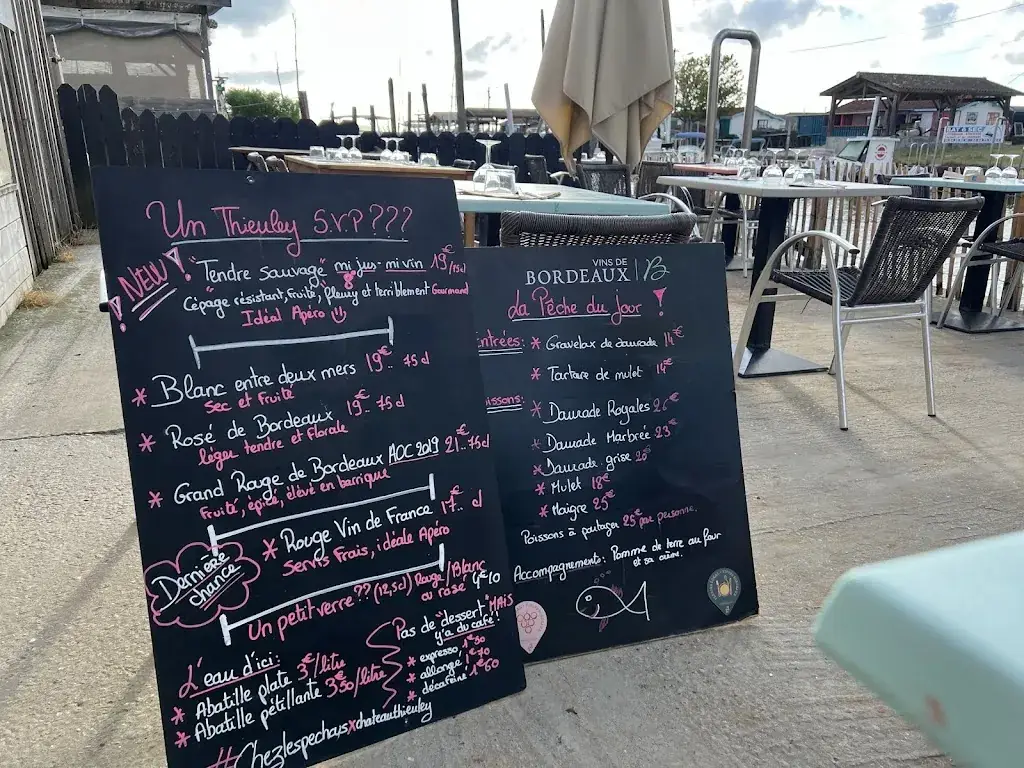 Un Thieuley S.V.P ???
NEW!
"Tendre sauvage" mi jus-mi vin 19€/75cl
Cépage résistant, fruité, fleury et terriblement Gourmand
Idéal Apéro
* Blanc entre deux mers 19€.. 75 cl
Sec et Fruité
* Rosé de Bordeaux 19€.. 75 cl
léger tendre et florale
* Grand Rouge de Bordeaux AOC 2019 21€.. 75cl
Fruité, épicé, élevé en barrique
Dernière chance
* Rouge Vin de France 17€.. cl
Servis Frais, idéale Apéro
Un petit verre?? (12,5cl) Rouge/Blanc
ou rosé 4€10
L'eau d'ici:
* Abatille plate 3€/litre
* Abatille pétillante 3€50/litre
Pas de "dessert" MAIS
y'a du café!
* expresso, 1€50
* allongé 1€70
* décaféiné 1€60
#Chezlespechaysxchateauthieuley
VINS DE
BORDEAUX B
La Pêche du Jour !
Entrées: * Gravelax de daurade 14€
* Tartare de mulet 14€
Poissons: * Daurade Royales 26€
* Daurade Marbrée 23€
* Daurade grise 25€
* Mulet 18€
* Maigre 25€
Poissons à partager 25€ par personne.
Accompagnements: Pomme de terre au four
et sa crème.